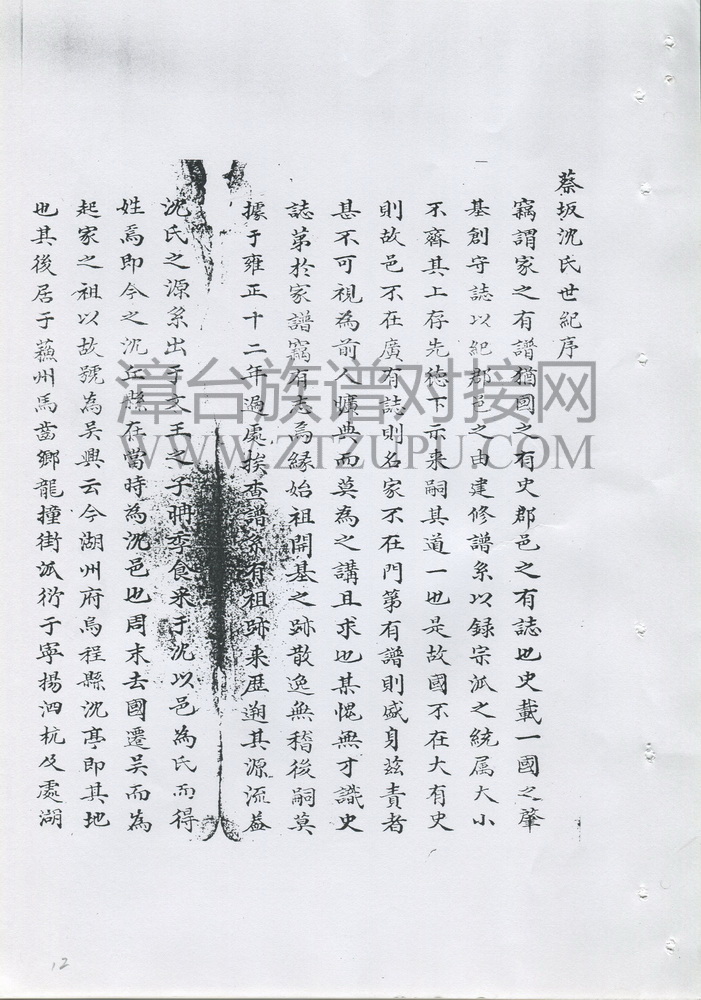 蔡坂沈氏世紀序
竊謂家之有譜猶國之有史郡邑之有誌也史載一國之肇
基創守誌以紀郡邑之由建修譜系以録宗派之統属大小
不齊其上存先徳下示来嗣其道一也是故國不在大有史
則故邑不在廣有誌則名家不在門第有譜則盛身茲責者
甚不可視為前人曠典而莫為之講且求也某愧無才識史
誌第於家譜竊有志焉縁始祖開基之跡散逸無稽後嗣莫
據于雍正十二年過處挨查譜系有祖跡来歴遡其源流葢
沈氏之源系出于文王之子聃季食采于沈以邑為氏而得
姓焉即今之沈丘縣在當時為沈邑也周末去國遷吴而為
起家之祖以故號為吴興云今湖州府烏程縣沈亭即其地
也其後居于蘓州馬啬鄉龍撞街派衍于寧揚泗杭及處湖
漳台族谱对接网
WWW.ZTZUPU.COM
12